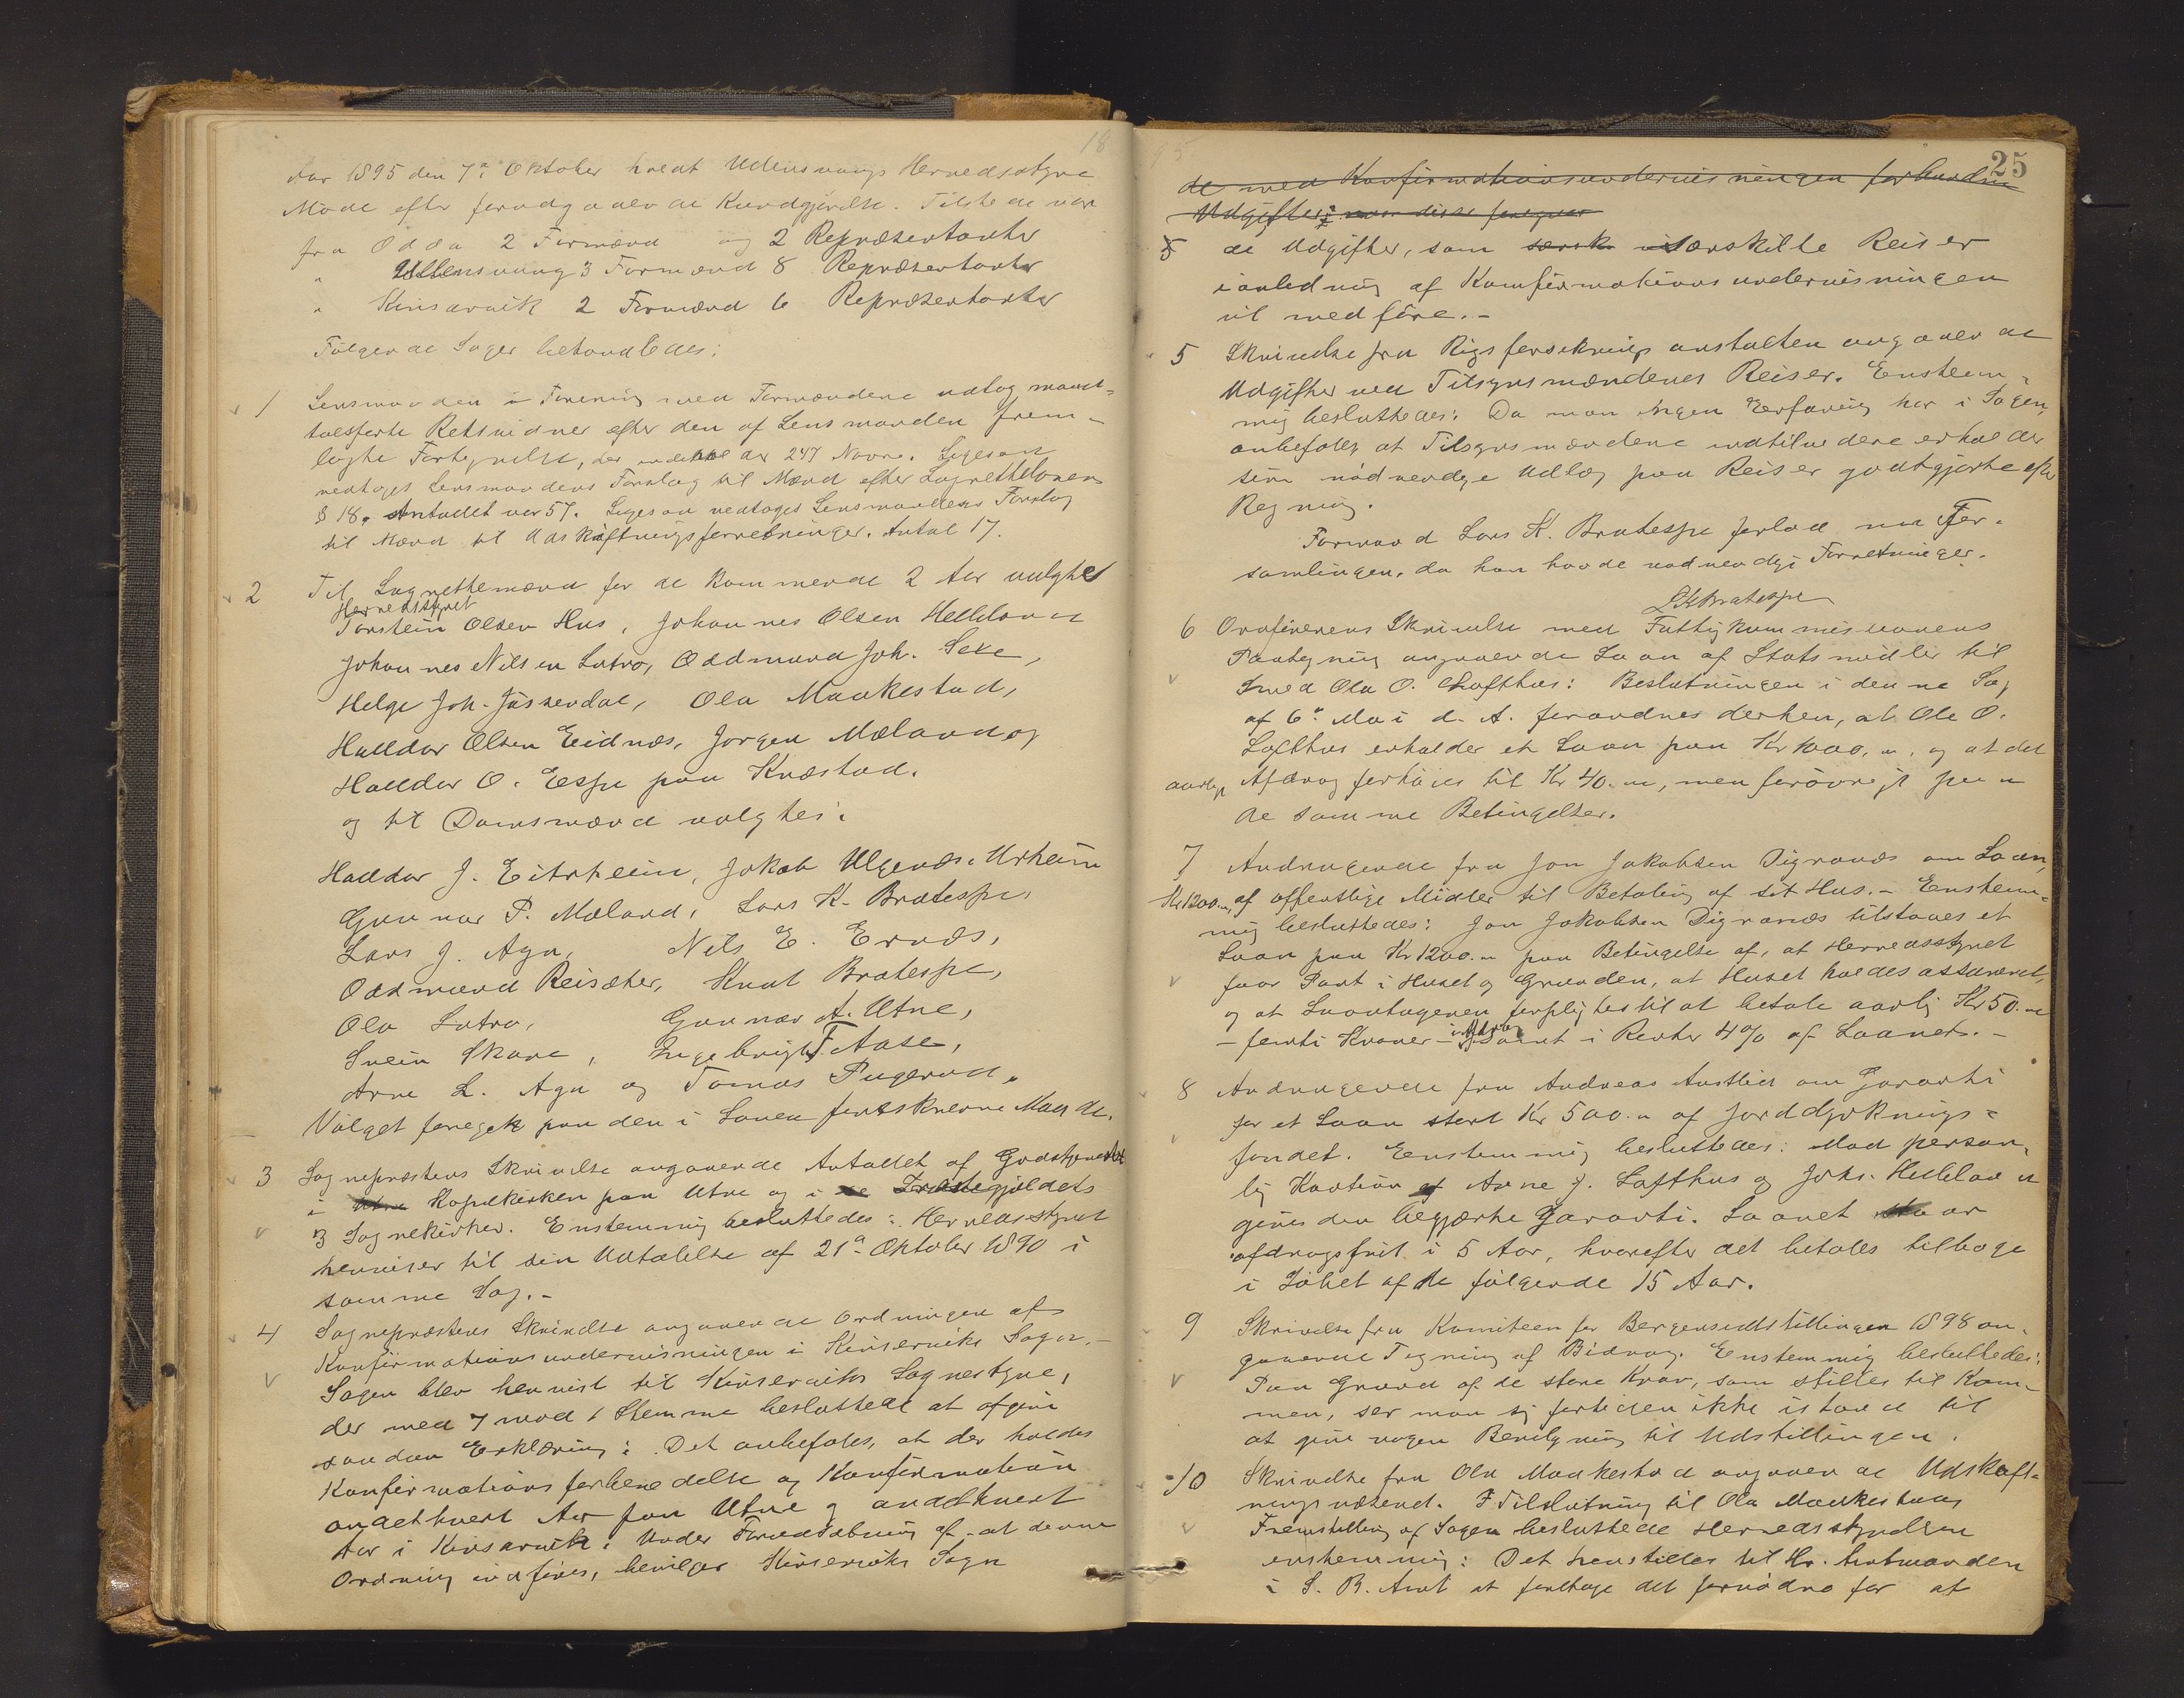 18
Aar 1895 den 7de Oktober holdt Ullensvangs Herredsstyre
Møde efter foregaaende Kundgjørelse. Tilstede var
fra Odda 2 Formænd og 2 Repræsentanter
" Ullensvang 3 Formænd 8 Repræsentanter
" Kinsarvik 2 Formænd 6 Repræsentanter
Følgende Sager behandledes:
1 Lensmanden i Forening med Formændene udtog mand-
talsførte Retsvidner efter den af Lensmanden frem-
lagte Fortegnelse, der indeholder 247 Navne. Ligesaa
vedtoges Lensmandens Forslag til Mænd efter Lagrettelovens
§ 18. Antallet var 57. Ligesaa vedtoges Lensmandens Forslag
til Mænd til Udskiftningsforretninger. Antal 17.
2 Til Lagrettemænd for de kommende 2 Aar valgte
Herredsstyret
Torstein Olsen Hus, Johannes Olsen Helleland
Johannes Nilsen Lutro, Oddmund Joh. Sexe,
Helge Joh. Jåstendal, Ola Maakestad,
Halldor Olsen Eidnæs, Jørgen Mæland og
Halldor O. Espe paa Knæstad.
og til Domsmænd valgtes:
Halldor J. Eitrheim, Jakob Ulgenæs. Urheim
Gunnar P. Mæland, Lars K. Bratespe,
Lars J. Aga, Nils E. Ernæs,
Oddmund Reisæter, Knut Bratespe,
Ola Lutro, Gunnar A. Utne,
Svein Skare, Ingebrigt T. Aase,
Arne L. Aga og Tomas Pugerud.
Valget foregik paa den i Loven foreskrevne Maade.
3 Sognepræstens Skrivelse angaaende Antallet af Gudstjenester
i Utne Kapelkirken paa Utne og i de Præstegjældets
3 Sognekirker. Enstemmig besluttedes: Herredsstyret
henviser til sin Udtalelse af 21de Oktober 1890 i
samme Sag.-
4 Sognepræstens Skrivelse angaaende Ordningen af
Konfirmationsundervisningen i Kinserviks Sogn.-
Sagen blev henvist til Kinserviks Sognestyre,
der med 7 mod 1 Stemme besluttede at afgive
saadan Erklæring: Det anbefales, at der holdes
Konfirmationsforberedelse og Konfirmation
andethvert Aar paa Utne og andethvert
Aar i Kinsarvik. Under Forudsætning af at denne
Ordning indføres, bevilger Kinserviks Sogn
25
de med Konfirmationsundervisningen forbundne
Udgifter: naar disse foregaar
5 de Udgifter, som særsk særskilte Reiser
i anledning af Komfirmationsundervisningen
vil medføre.-
5 Skrivelse fra Rigsforsikringsanstalten angaaende
Udgifter ved Tilsynsmændenes Reiser. Enstem-
mig besluttedes: Da man ingen Erfaring har i Sagen,
anbefales at Tilsynsmændene indtilvidere erholder
sine nødvendige Udlæg paa Reiser godtgjorte efter
Regning.
Formand Lars K. Bratespe forlod nu For-
samlingen, da han havde nødvendige Forretninger.
LKBratespe
6 Ordførerens Skrivelse med Fattigkommissionens
Paategning angaaende Laan af Statsmidler til
Smed Ola O. Lofthus: Beslutningen i denne Sag
af 6te Mai d. A. forandres derhen, at Ole O.
Lofthus erholder et Laan paa Kr 1000.00, og at det
aarlige Afdrag forhøies til Kr 40.00, men forøvrigt paa
de samme Betingelser.
7 Andragende fra Jon Jakobsen Digranæs om Laan,
Kr 1200.00, af offentlige Midler til Betaling af sit Hus.- Enstem-
mig besluttedes: Jon Jakobsen Digranæs tilstaaes et
Laan paa Kr 1200.00 paa Betingelse af, at Herredsstyret
faar Pant i Huset og Grunden, at Huset holdes assureret,
og at Laantageren forpligtes til at betale aarlig Kr 50.00
- femti Kroner - i Afdrag samt i Renter 4% af Laanet.-
8 Andragende fra Andreas Austlid om Garanti
for et Laan stort Kr 500.00 af Jorddyrknings-
fondet. Enstemmig besluttedes: Mod person-
lig Kaution af Arne J. Lofthus og Johs. Helleland
gives den begjærte Garanti. Laanet staar
afdragsfrit i 5 Aar, hvorefter det betales tilbage
i Løbet af de følgende 15 Aar.
9 Skrivelse fra Komiteen for Bergensudstillingen 1898 an-
gaaende Tegning af Bidrag. Enstemmig besluttedes:
Paa Grund af de store Krav, som stilles til Kom-
men, ser man sig fortiden ikke istand til
at give nogen Bevilgning til Udstillingen.
10 Skrivelse fra Ola Maakestad angaaende Udskift-
ningsvæsenet. I Tilslutning til Ola Maakestads
Fremstilling af Sagen besluttede Herredsstyrelsen
enstemmig: Det henstilles til Hr. Amtmanden
i S. B. Amt at foretage det fornødne for at